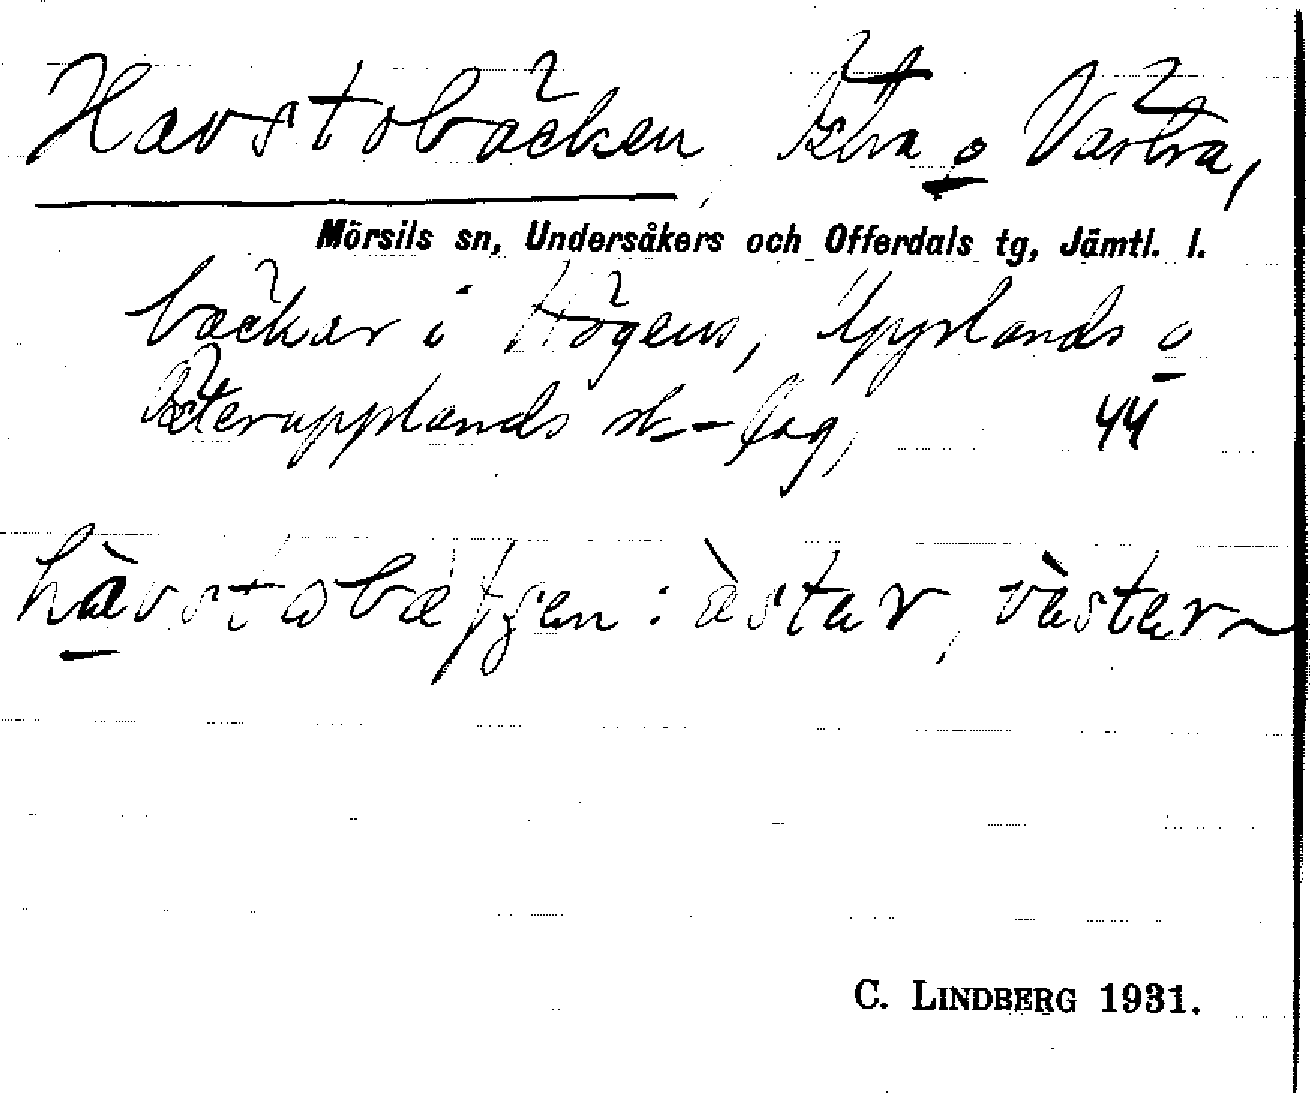 Havstobäcken, Östra o Västra,
Mörsils sn, Undersåkers och Offerdals tg, Jämtl. l.
bäckar i Högens, Upplands o
Österupplands sk-lag, 44
: östar, västar
C. LINDBERG 1931.